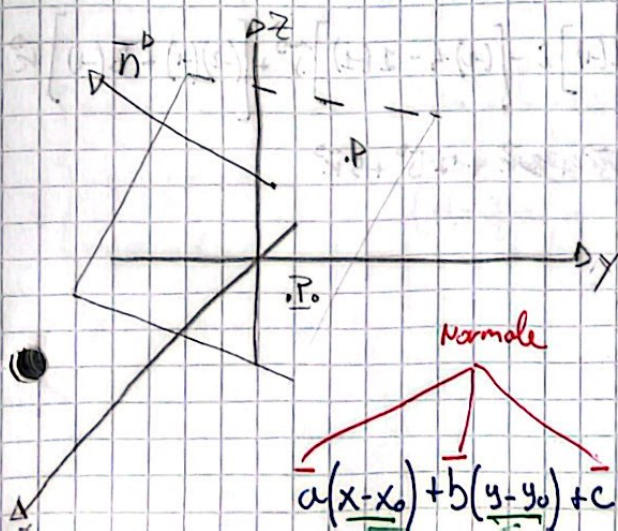 z
n
.P
y
.P₀
Normale
a(x-x₀)+b(y-y₀)+c